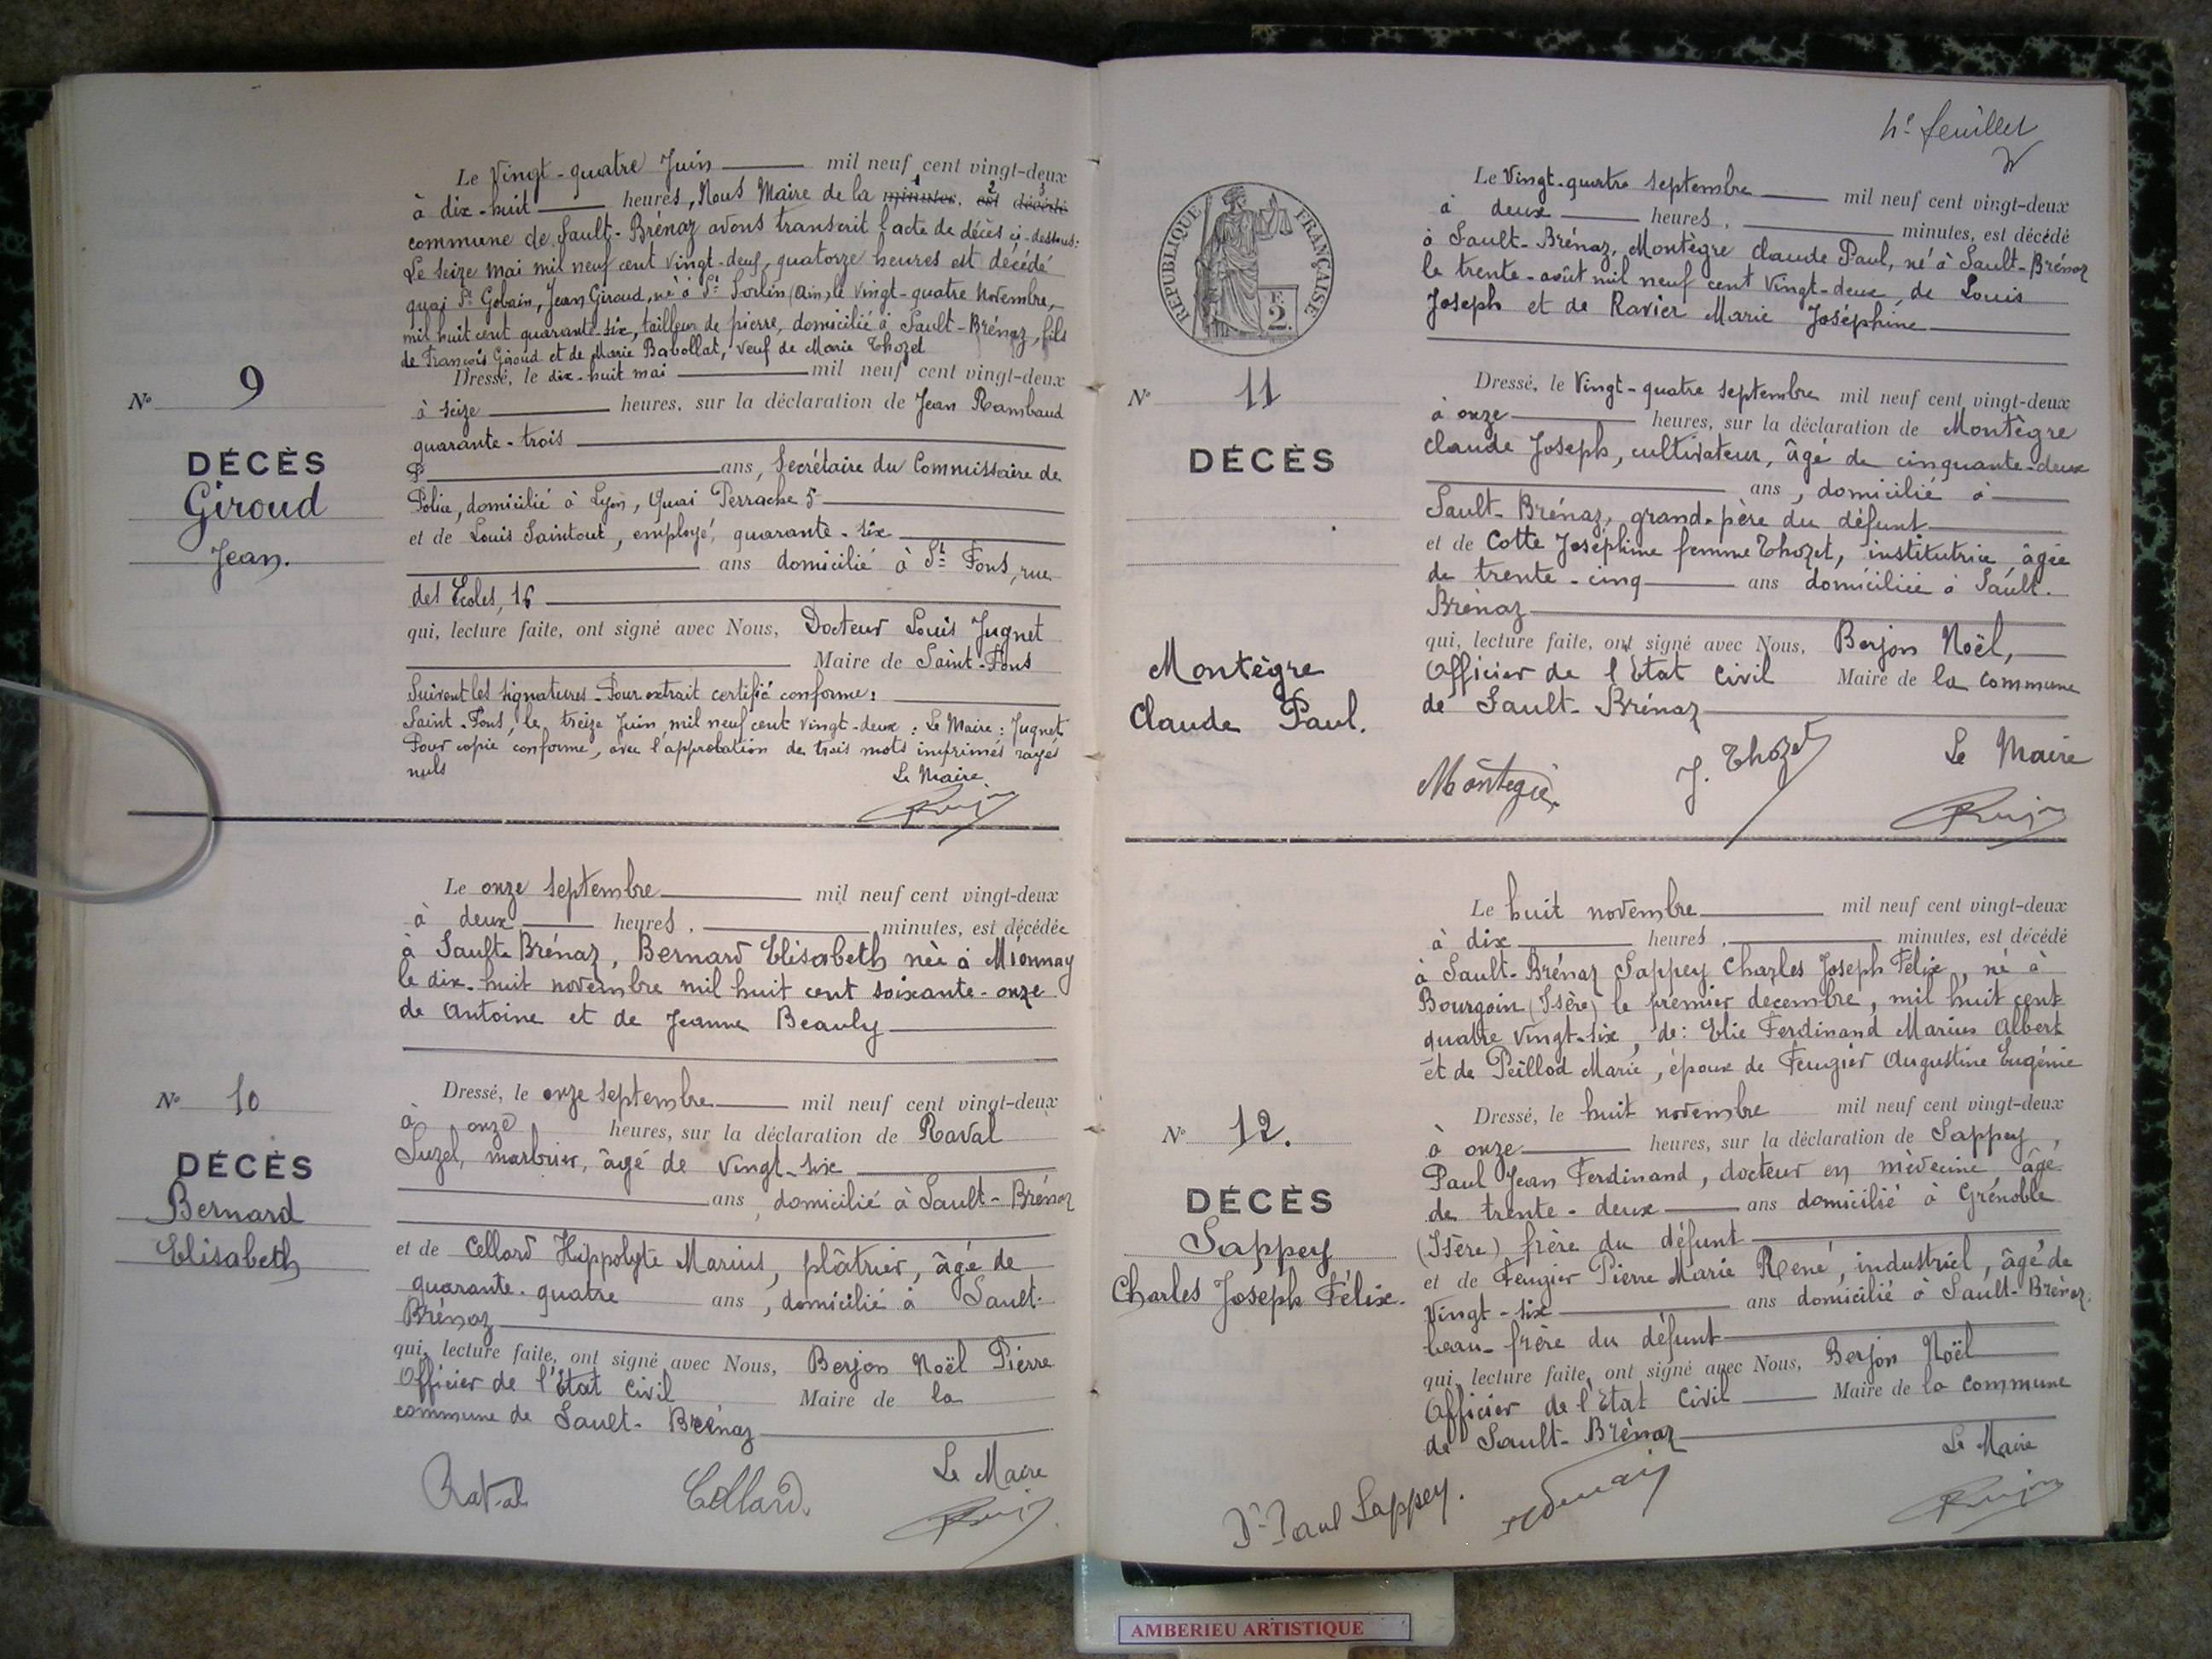 Le Vingt-quatre Juin mil neuf cent vingt-deux
à dix-huit heures, Nous Maire de la minutes, est décédé
commune de Sault-Brénaz avons transcrit l'acte de décès ci-dessous:
Le seize mai mil neuf cent vingt-deux, quatorze heures est décédé
quai St Gobain, Jean Giroud, né à St Sorlin (Ain) le vingt-quatre Novembre,
mil huit cent quarante-six, tailleur de pierre, domicilié à Sault-Brénaz, fils
de François Giroud et de Marie Babollat, veuf de Marie Thozet
Dressé, le dix-huit mai mil neuf cent vingt-deux
à seize heures, sur la déclaration de Jean Rambaud
quarante-trois
ans, Secrétaire du Commissaire de
Police, domicilié à Lyon, Quai Perrache 5
et de Louis Saintout, employé, quarante-six
ans domicilié à St Fons, rue
des Ecoles, 16
qui, lecture faite, ont signé avec Nous, Docteur Louis Jugnet
Maire de Saint-Fons
Suivent les signatures. Pour extrait certifié conforme:
Saint-Fons, le treize Juin mil neuf cent vingt-deux: Le Maire: Jugnet
Pour copie conforme, avec l'approbation de trois mots imprimés rayés
nuls
Le Maire
No 9
DÉCÈS
Giroud
Jean.
Le onze septembre mil neuf cent vingt-deux
à deux heures, minutes, est décédée
à Sault-Brénaz, Bernard Elisabeth née à Mionnay
le dix-huit novembre mil huit cent soixante-onze
de Antoine et de Jeanne Beauly
Dressé, le onze septembre mil neuf cent vingt-deux
à onze heures, sur la déclaration de Raval
Suzel, marbrier, âgé de vingt-six
ans, domicilié à Sault-Brénaz
et de Cellard Hippolyte Marius, plâtrier, âgé de
quarante-quatre ans, domicilié à Sault-
Brénaz
qui, lecture faite, ont signé avec Nous, Berjon Noël Pierre
Officier de l'Etat Civil Maire de la
commune de Sault-Brénaz
Raval Cellard. Le Maire
No 10
DÉCÈS
Bernard
Elisabeth
4e feuillet
RÉPUBLIQUE FRANÇAISE
F. 2.
Le Vingt-quatre septembre mil neuf cent vingt-deux
à deux heures, minutes, est décédé
à Sault-Brénaz, Montègre Claude Paul, né à Sault-Brénaz
le trente-août mil neuf cent vingt-deux, de Louis
Joseph et de Ravier Marie Joséphine
Dressé, le Vingt-quatre septembre mil neuf cent vingt-deux
à onze heures, sur la déclaration de Montègre
Claude Joseph, cultivateur, âgé de cinquante-deux
ans, domicilié à
Sault-Brénaz, grand-père du défunt
et de Cotte Joséphine femme Thozet, institutrice, âgée
de trente-cinq ans domiciliée à Sault-
Brénaz
qui, lecture faite, ont signé avec Nous, Berjon Noël,
Officier de l'Etat Civil Maire de la commune
de Sault-Brénaz
Montègre J. Thozet Le Maire
No 11
DÉCÈS
Montègre
Claude Paul.
Le huit novembre mil neuf cent vingt-deux
à dix heures, minutes, est décédé
à Sault-Brénaz Sappey Charles Joseph Félix, né à
Bourgoin (Isère) le premier décembre, mil huit cent
quatre vingt-six, de: Elie Ferdinand Marius Albert
et de Peillod Marie, époux de Feugier Augustine Eugénie
Dressé, le huit novembre mil neuf cent vingt-deux
à onze heures, sur la déclaration de Sappey,
Paul Jean Ferdinand, docteur en médecine âgé
de trente-deux ans domicilié à Grénoble
(Isère) frère du défunt
et de Feugier Pierre Marie René, industriel, âgé de
vingt-six ans domicilié à Sault-Brénaz,
beau-frère du défunt
qui, lecture faite, ont signé avec Nous, Berjon Noël
Officier de l'Etat Civil Maire de la commune
de Sault-Brénaz
Dr Paul Sappey. Le Maire
No 12.
DÉCÈS
Sappey
Charles Joseph Félix.
AMBERIEU ARTISTIQUE